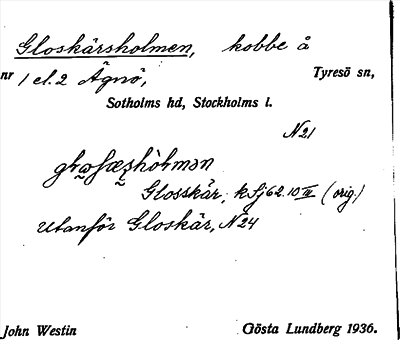 Gloskärsholmen, kobbe å
nr 1 el. 2 Ägnö, Tyresö sn,
Sotholms hd, Stockholms l.
N21
Glosskär, kSj 62.10 III (orig.)
utanför Gloskär, N24
John Westin Gösta Lundberg 1936.